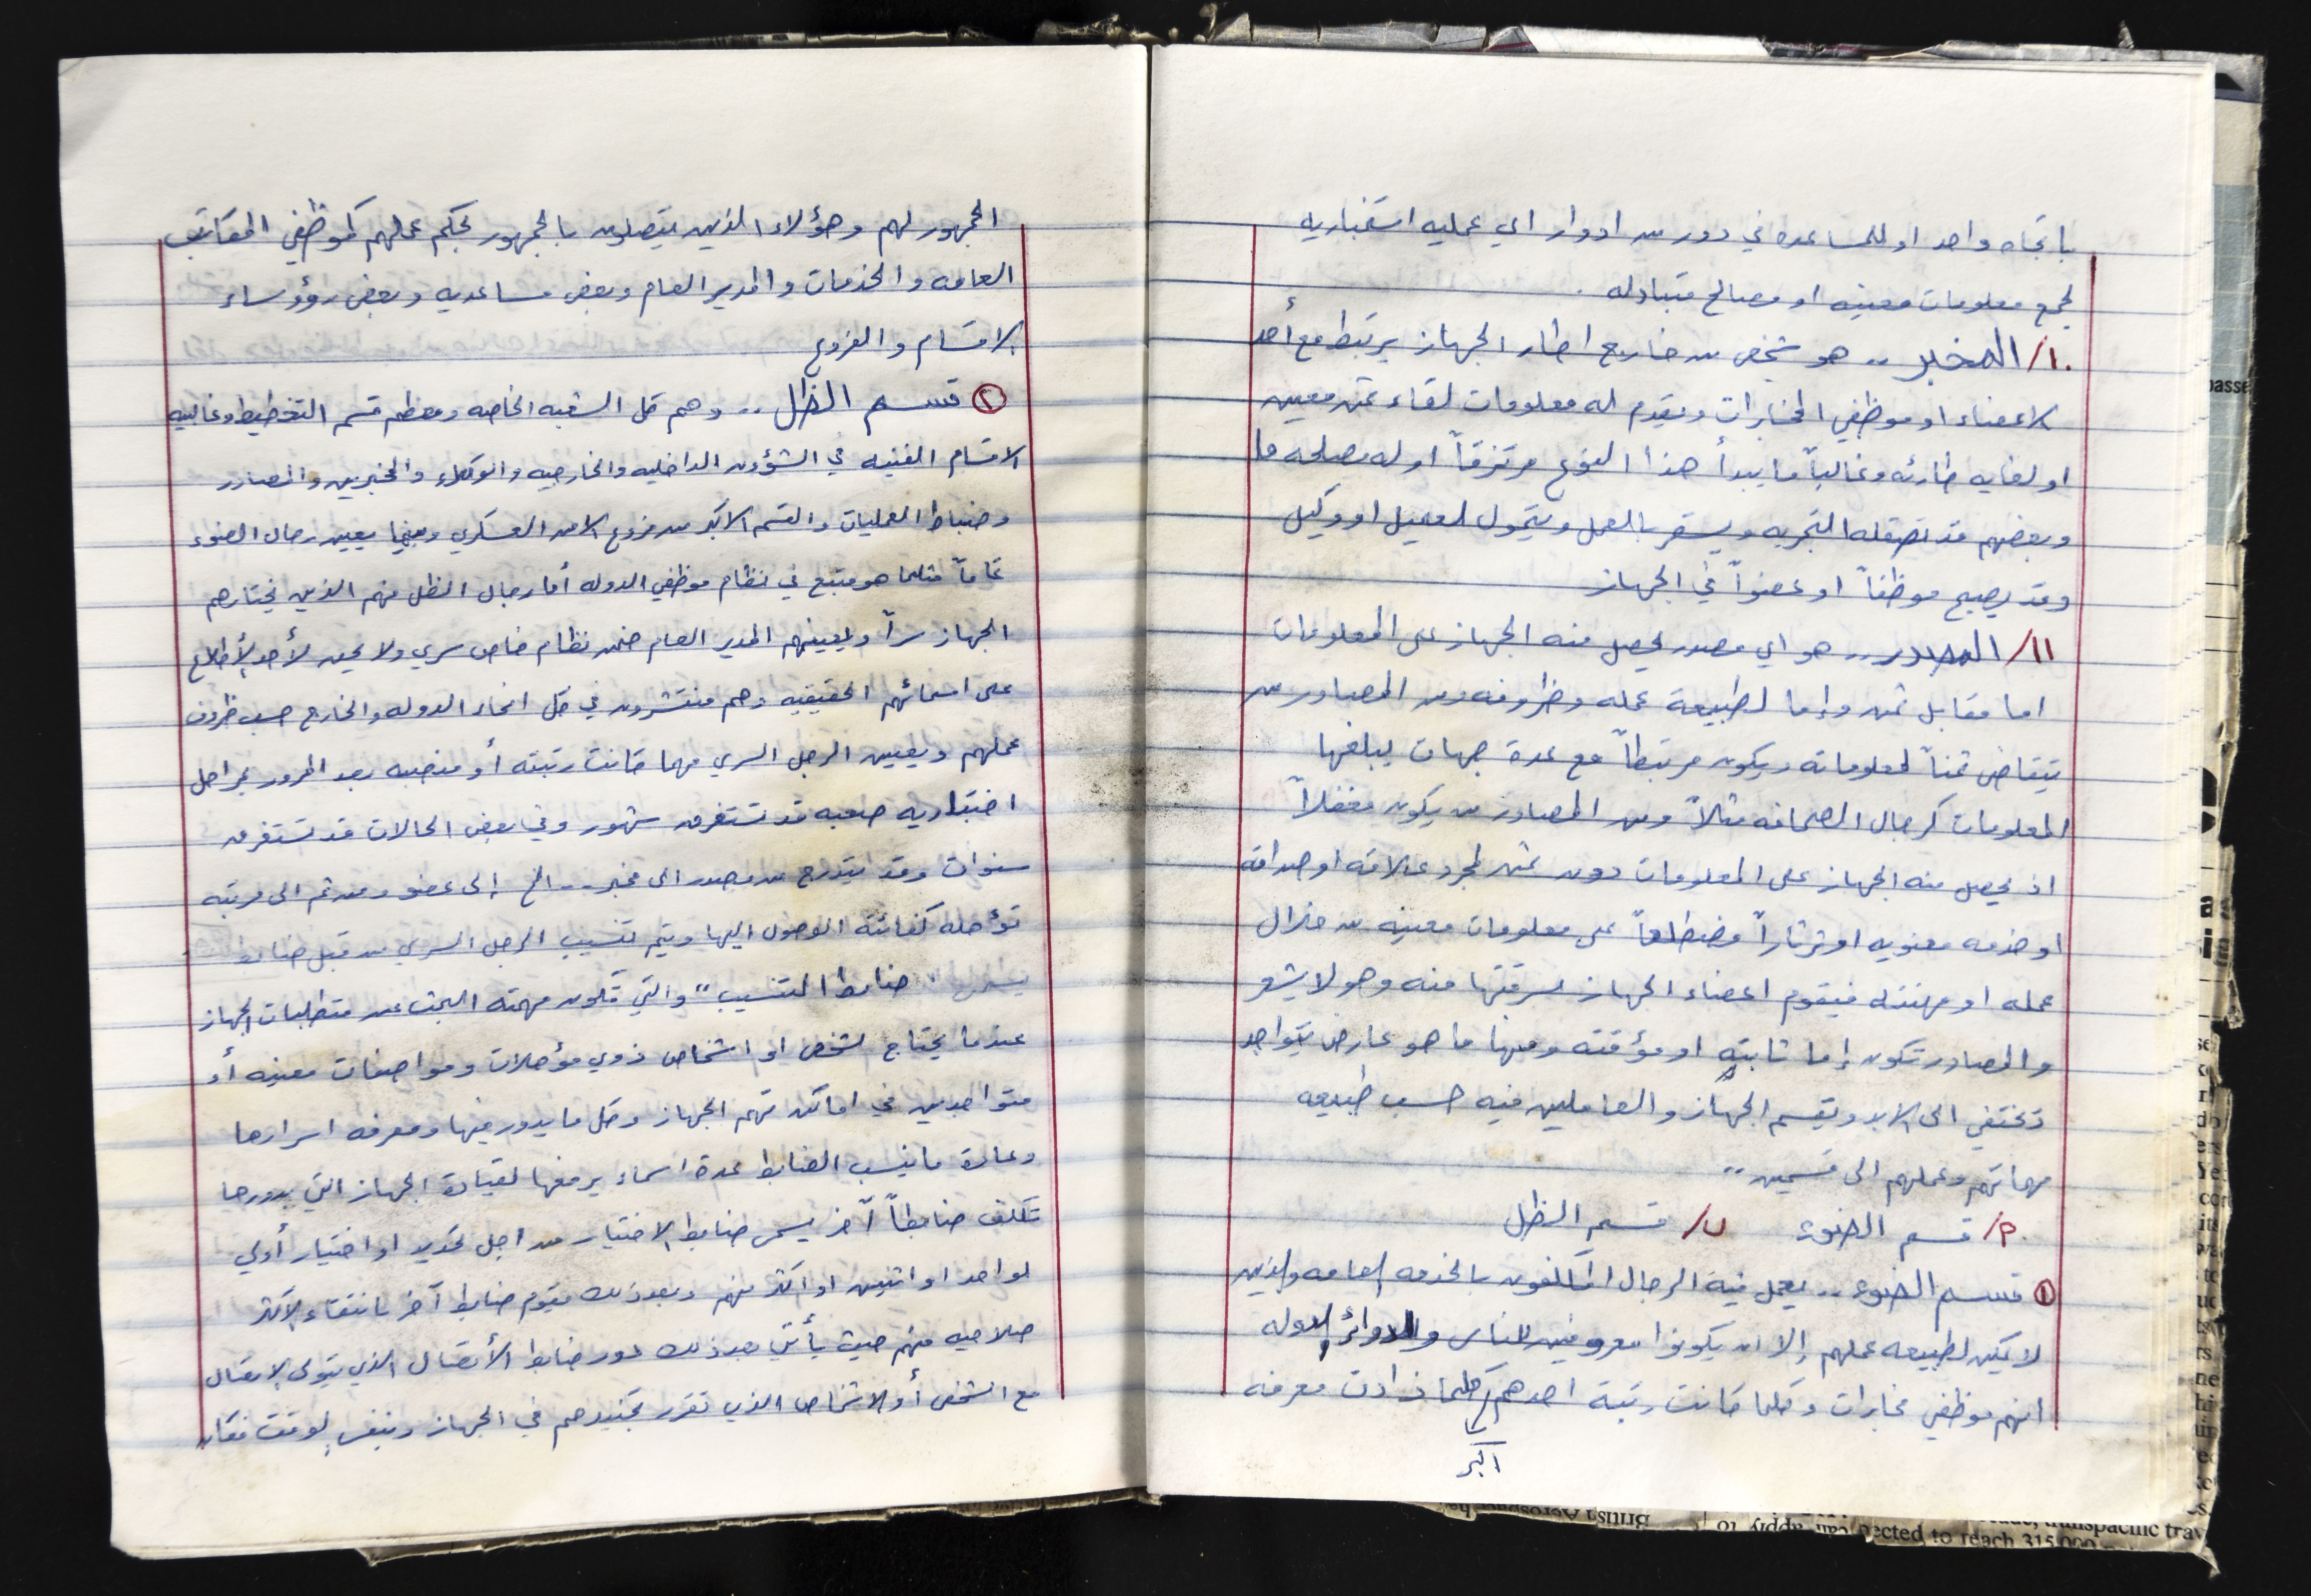 باتجاه واحد او للمساعده في دور من ادوار اي عمليه استخباريه
لجمع معلومات معينه او مصالح متبادله .
١٠/ المخبر .. هو شخص من خارج اطار الجهاز يرتبط مع أحد
الاعضاء او موظفي المخابرات ويقدم له معلومات لقاء ثمن معين
او لغايه طارئه وغالباً ما يبدأ هذا النوع مرتزقاً او له مصلحه ما
وبعضهم قد تصقله التجربه ويستمر بالعمل ويتحول لعميل او وكيل
وقد يصبح موظفاً او عضواً في الجهاز
١١/ المصدر .. هو اي مصدر يحصل منه الجهاز على المعلومات
اما مقابل ثمن وإما لطبيعة عمله وظروفه ومن المصادر من
يتقاضى ثمناً لمعلوماته ويكون مرتبطاً مع عدة جهات يبلغها
المعلومات كرجال الصحافه مثلاً ومن المصادر من يكون مغفلاً
اذ يحصل منه الجهاز على المعلومات دون ثمن لمجرد علاقه او صداقه
او خدمه معنويه او ثرثاراً مضطلعاً على معلومات معينه من خلال
عمله او مهنته فيقوم اعضاء الجهاز بسرقتها منه وهو لا يشعر
والمصادر تكون إما ثابته او مؤقته ومنها ما هو عارض يتواجد
وتختفي الى الابد ويقسم الجهاز والعاملين فيه حسب طبيعه
مهماتهم وعملهم الى قسمين ..
م/ قسم الضوء ب/ قسم الظل
① قسم الضوء .. يعمل فيه الرجال المكلفون بالخدمه العامه والذين
لا يمكن لطبيعه عملهم إلا ان يكونوا معروفين للناس والدوائر الدوله
انهم موظفي مخابرات وكلما كانت رتبة احدهم كلما زادت معرفه
اكبر
الجمهور لهم وهؤلاء الذين يتصلون بالجمهور بحكم عملهم كموظفي المكاتب
العامه والخدمات والمدير العام وبعض مساعديه وبعض رؤوساء
الاقسام والفروع
② قسم الظل .. وهم كل الشعبه الخاصه ومعظم قسم التخطيط وغالبيه
الاقسام الفنيه في الشؤون الداخليه والخارجيه والوكلاء والمخبرين والمصادر
وضباط العمليات والقسم الاكبر من فروع الامن العسكري وبينما يعين رجال الضوء
تماماً مثلما هو متبع في نظام موظفي الدوله أما رجال الظل فهم الذين يختارهم
الجهاز سراً ويعينهم المدير العام ضمن نظام خاص سري ولا يحق لأحد الأطلاع
على اسمائهم الحقيقيه وهم منتشرون في كل انحاء الدوله والخارج حسب ظروف
عملهم ويعيين الرجل السري مهما كانت رتبته أو منصبه بعد المرور بمراحل
اختباريه صعبه قد تستغرق شهور وفي بعض الحالات قد تستغرق
سنوات وقد يتدرج من مصدر الى مخبر .. الخ إلى عضو ومن ثم الى مرتبه
تؤهله كفائته الوصول اليها ويتم تنسيب الرجل السري من قبل ضابط
يسمى "ضابط التنسيب" والتي تكون مهمته البحث عن متطلبات الجهاز
عندما يحتاج لشخص او اشخاص ذوي مؤهلات ومواصفات معينه أو
متواجدين في اماكن تهم الجهاز وكل ما يدور فيها ومعرفه اسرارها
وعادة ما ينسب الضابط عدة اسماء يرفعها لقيادة الجهاز التي بدورها
تكلف ضابطاً آخر يسمى ضابط الاختيار من اجل تحديد او اختيار أولي
لواحد او اثنين او اكثر منهم وبعد ذلك يقوم ضابط آخر بانتقاء الاكثر
صلاحيه منهم حيث يأتي بعد ذلك دور ضابط الأتصال الذي يتولى الاتصال
مع الشخص أو الاشخاص الذي تقرر تجنيدهم في الجهاز وبنفس الوقت فكان
British Aerospace
can apply to
transpacific trav
pected to reach 315,000